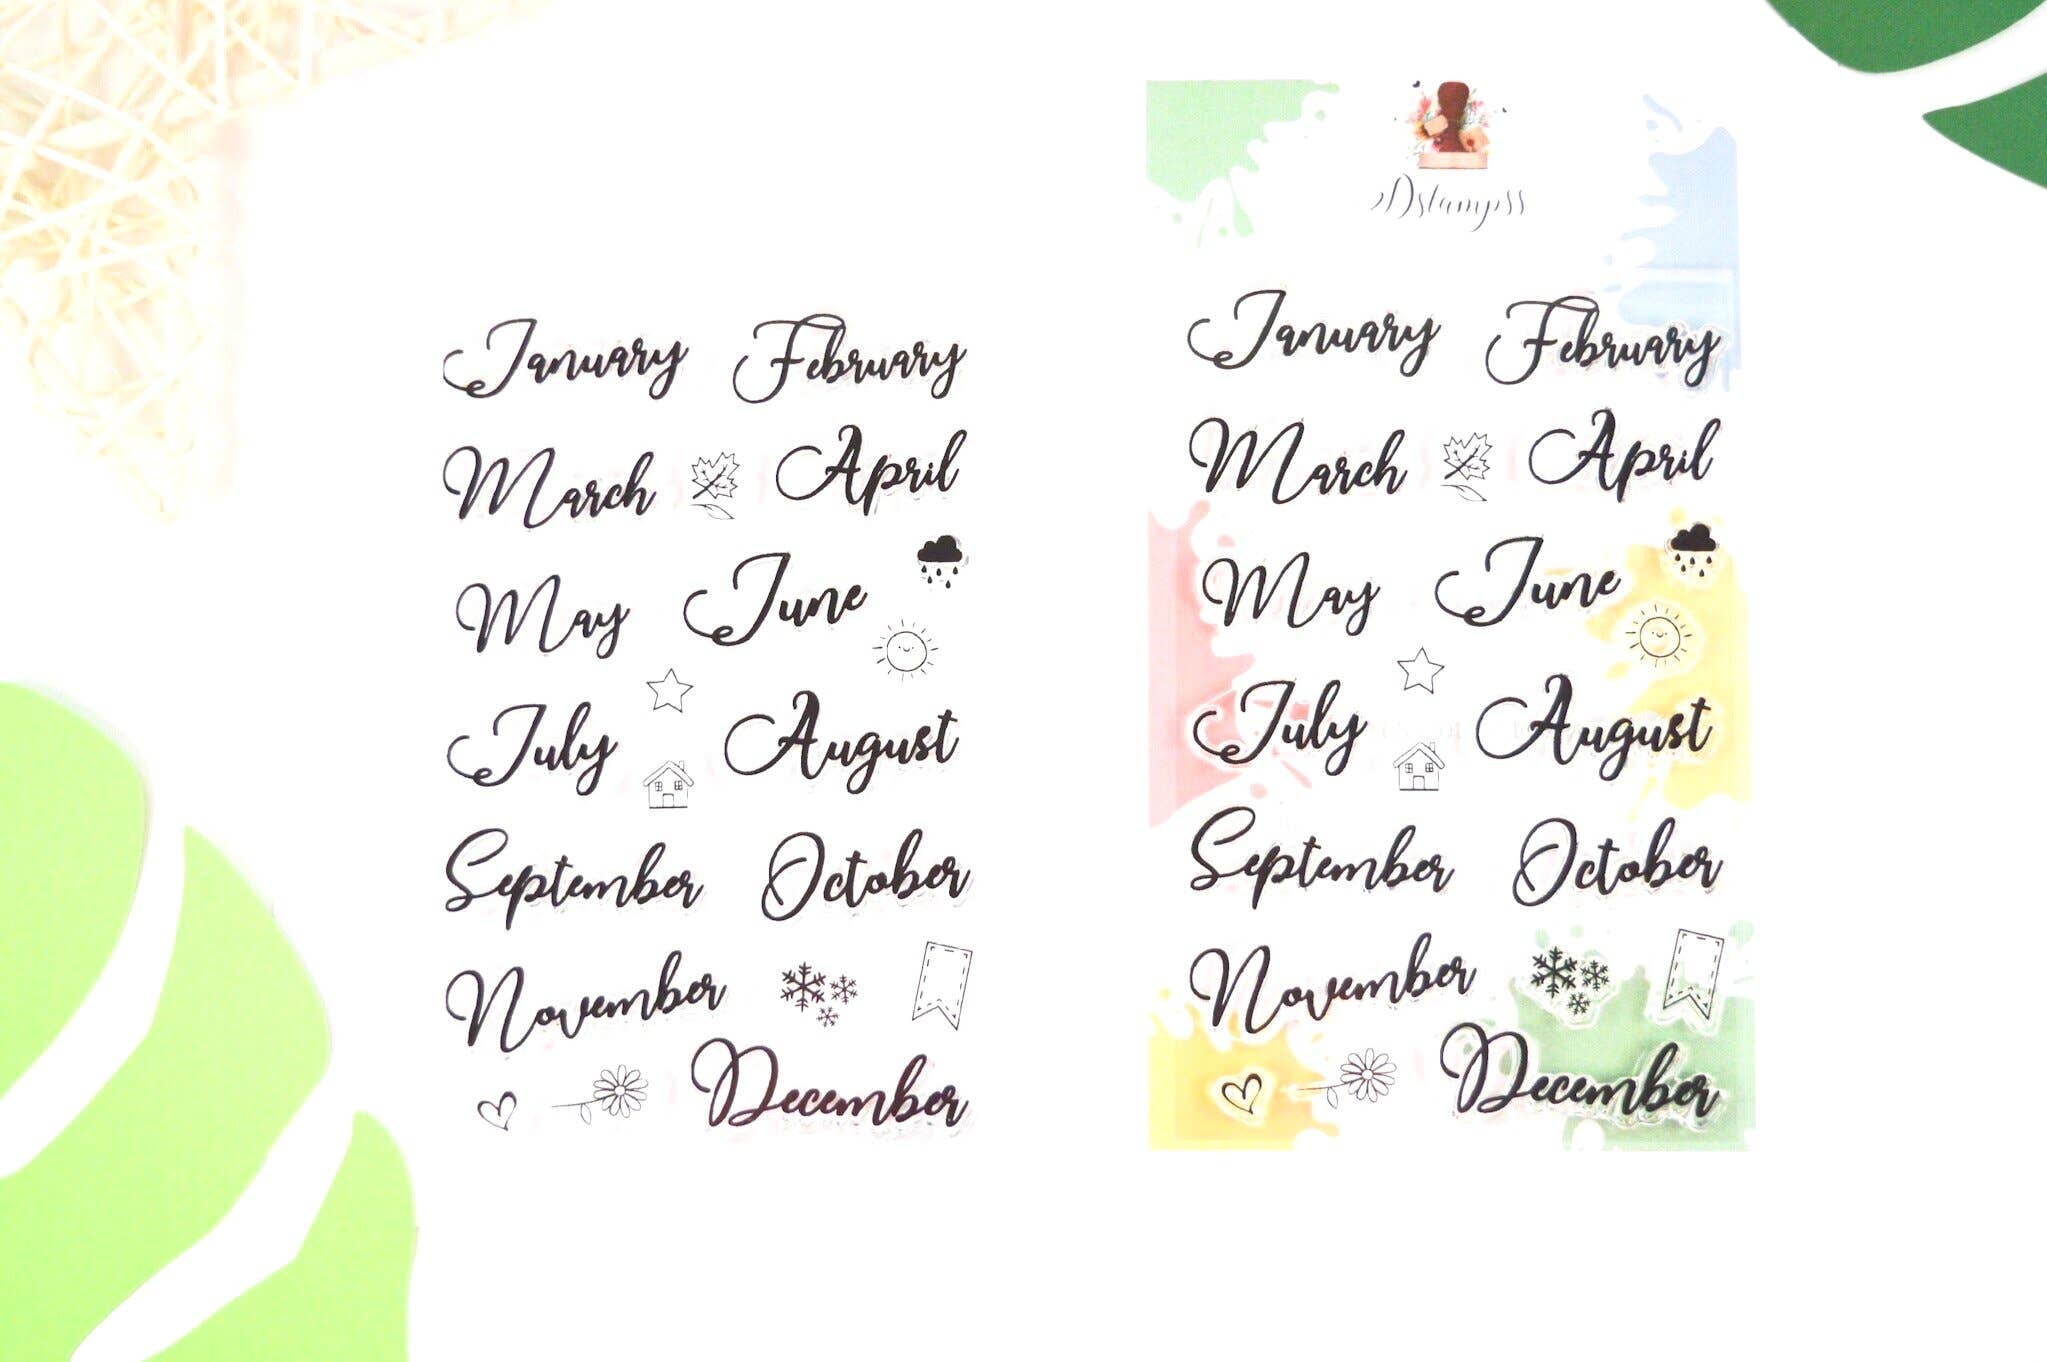 January February
March April
May June
July August
September October
November
December
Dstampss
January February
March April
May June
July August
September October
November
December